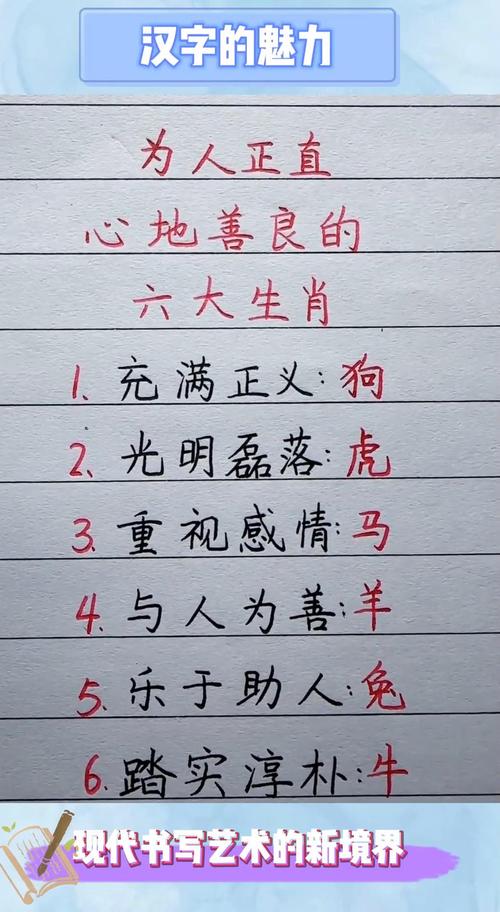 汉字的魅力
为人正直
心地善良的
六大生肖
1. 充满正义: 狗
2. 光明磊落: 虎
3. 重视感情: 马
4. 与人为善: 羊
5. 乐于助人: 兔
6. 踏实淳朴: 牛
现代书写艺术的新境界